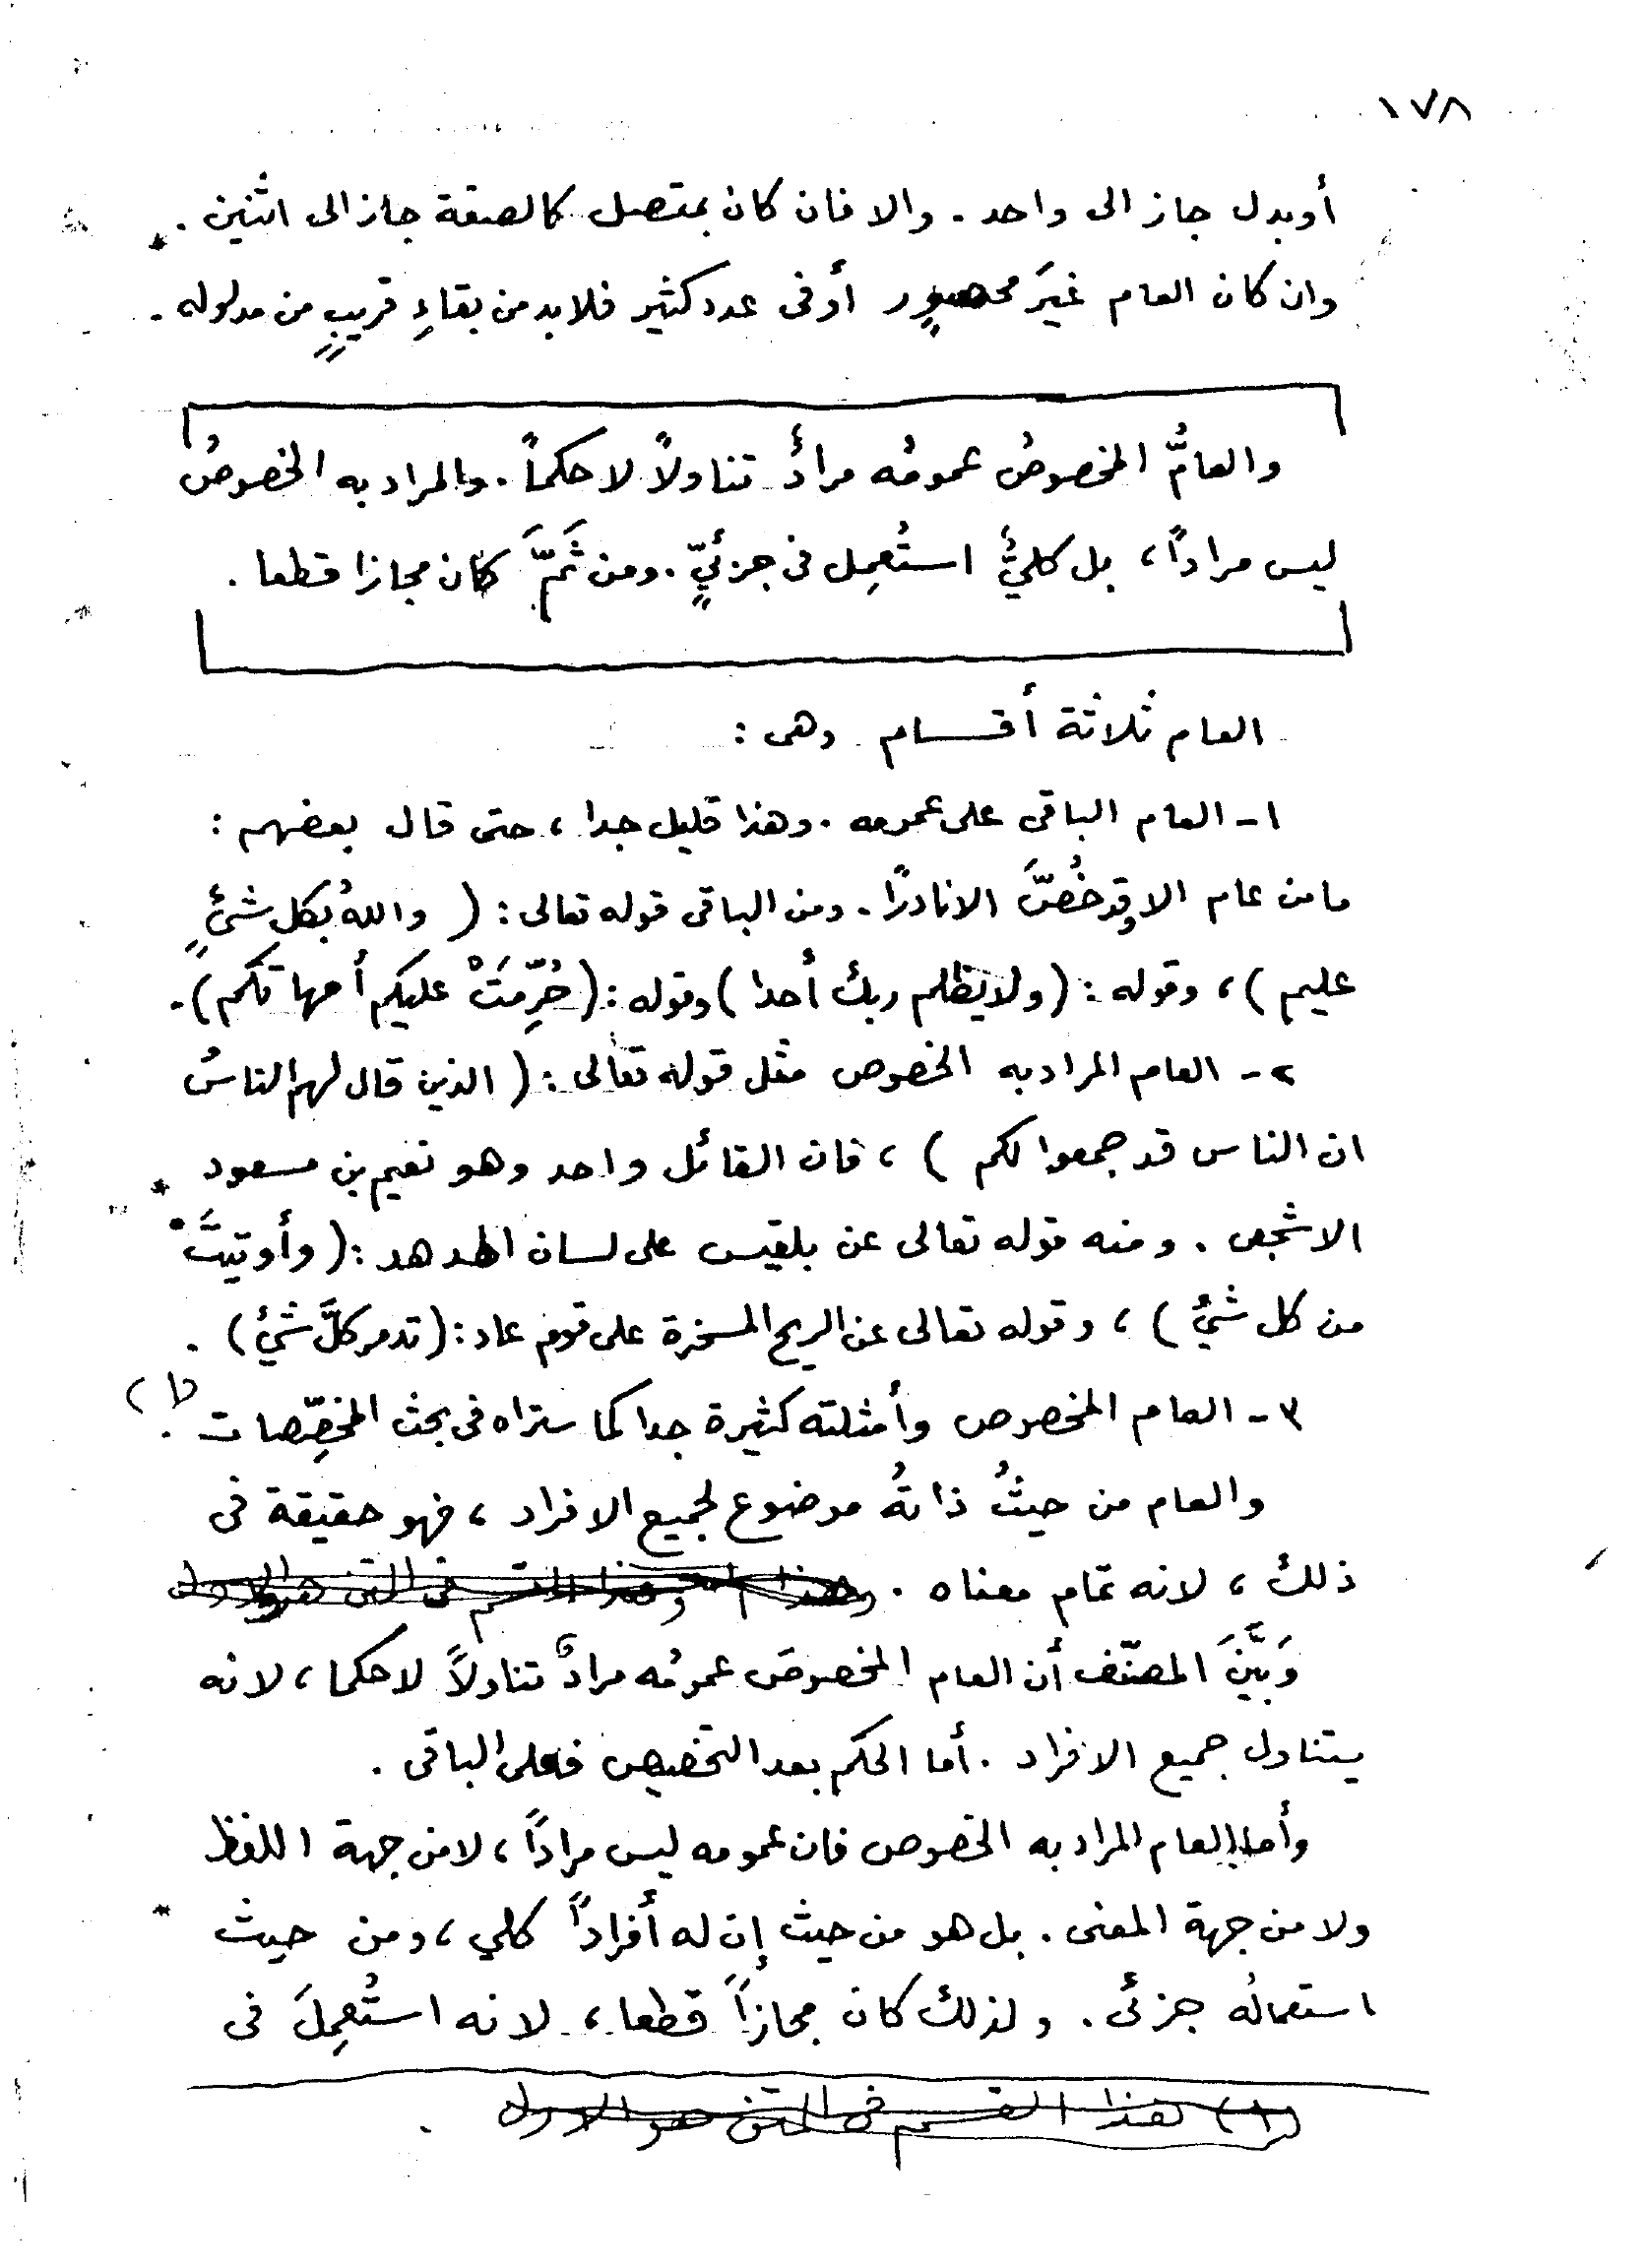 ١٧٨
أو بدل جاز الى واحد . والا فان كان بمتصل كالصفة جاز الى اثنين .
وان كان العام غيرَ محصورٍ أو فى عدد كثير فلا بد من بقاءِ قريبٍ من مدلوله .
والعامُّ المخصوصُ عمومُه مرادُ تناولاً لا حكماً . والمراد به الخصوصُ
ليس مراداً ، بل كليُّ استُعمِل فى جزئيٍّ . ومن ثَمَّ كان مجازا قطعا .
العام ثلاثة أقسام وهى :
١ - العام الباقى على عمومه . وهذا قليل جدا ، حتى قال بعضهم :
ما من عام الا وقد خُصَّ الا نادرًا . ومن الباقى قوله تعالى : ( واللهُ بكل شئٍ
عليم ) ، وقوله : ( ولا يظلم ربك أحدا ) وقوله : ( حُرِّمَتْ عليكم أمهاتكم ) .
٢ - العام المراد به الخصوص مثل قوله تعالى : ( الذين قال لهم الناسُ
ان الناس قد جمعوا لكم ) ، فان القائل واحد وهو نعيم بن مسعود
الاشجعى . ومنه قوله تعالى عن بلقيس على لسان الهدهد : ( وأوتيتْ
من كل شئٍ ) ، وقوله تعالى عن الريح المسخرة على قوم عاد : ( تدمر كلَّ شئ ) .
٣ - العام المخصوص وأمثلته كثيرة جدا كما ستراه فى بحث المخصِّصات . (١)
والعام من حيثُ ذاتهُ موضوع لجميع الافراد ، فهو حقيقة فى
ذلك ، لانه تمام معناه . وهذا القسم فى المتن هو الاول
وَبيَّنَ المصنّف أن العام المخصوصَ عمومُه مرادٌ تناولاً لا حكما ، لانه
يتناول جميع الافراد . أما الحكم بعد التخصيص فعلى الباقى .
وأما العام المراد به الخصوص فان عمومه ليس مراداً ، لا من جهة اللفظ
ولا من جهة المعنى . بل هو من حيث إن له أفراداً كلي ، ومن حيث
استعمالُه جزئى . ولذلك كان مجازاً قطعا ، لانه استُعمِلَ فى
(١) هذا القسم فى المتن هو الاول .